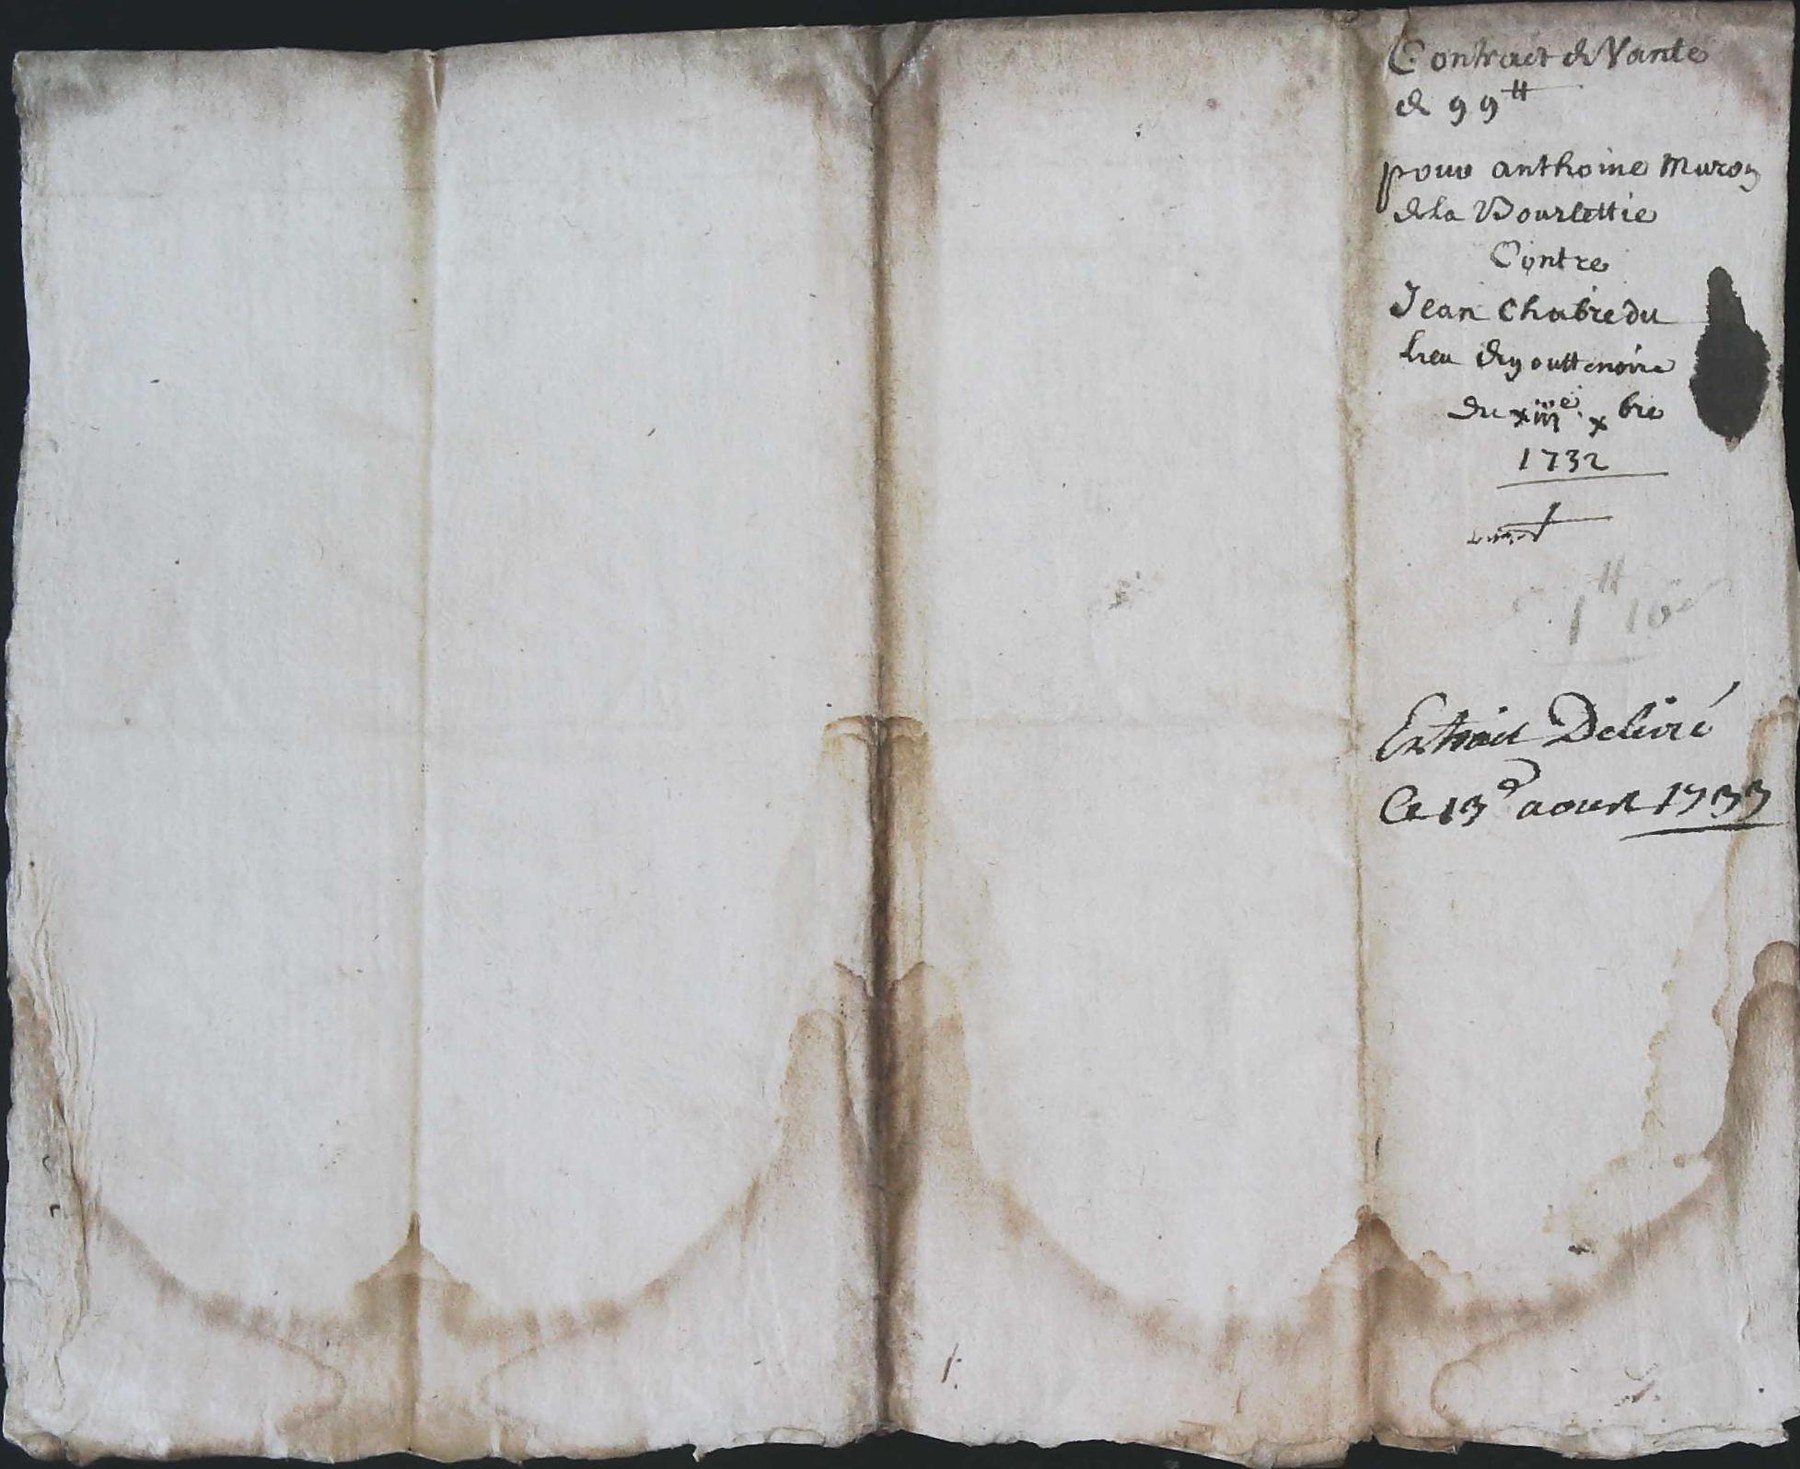 Contract de Vante
de 99 ₶
pour anthoine Muron
de la Bourlettie
Contre
Jean Chabre du
lieu de gouttenoire
du xiiie xbre
1732
1 ₶ 10 s
Extrait Delivré
Ce 13e aoust 1733